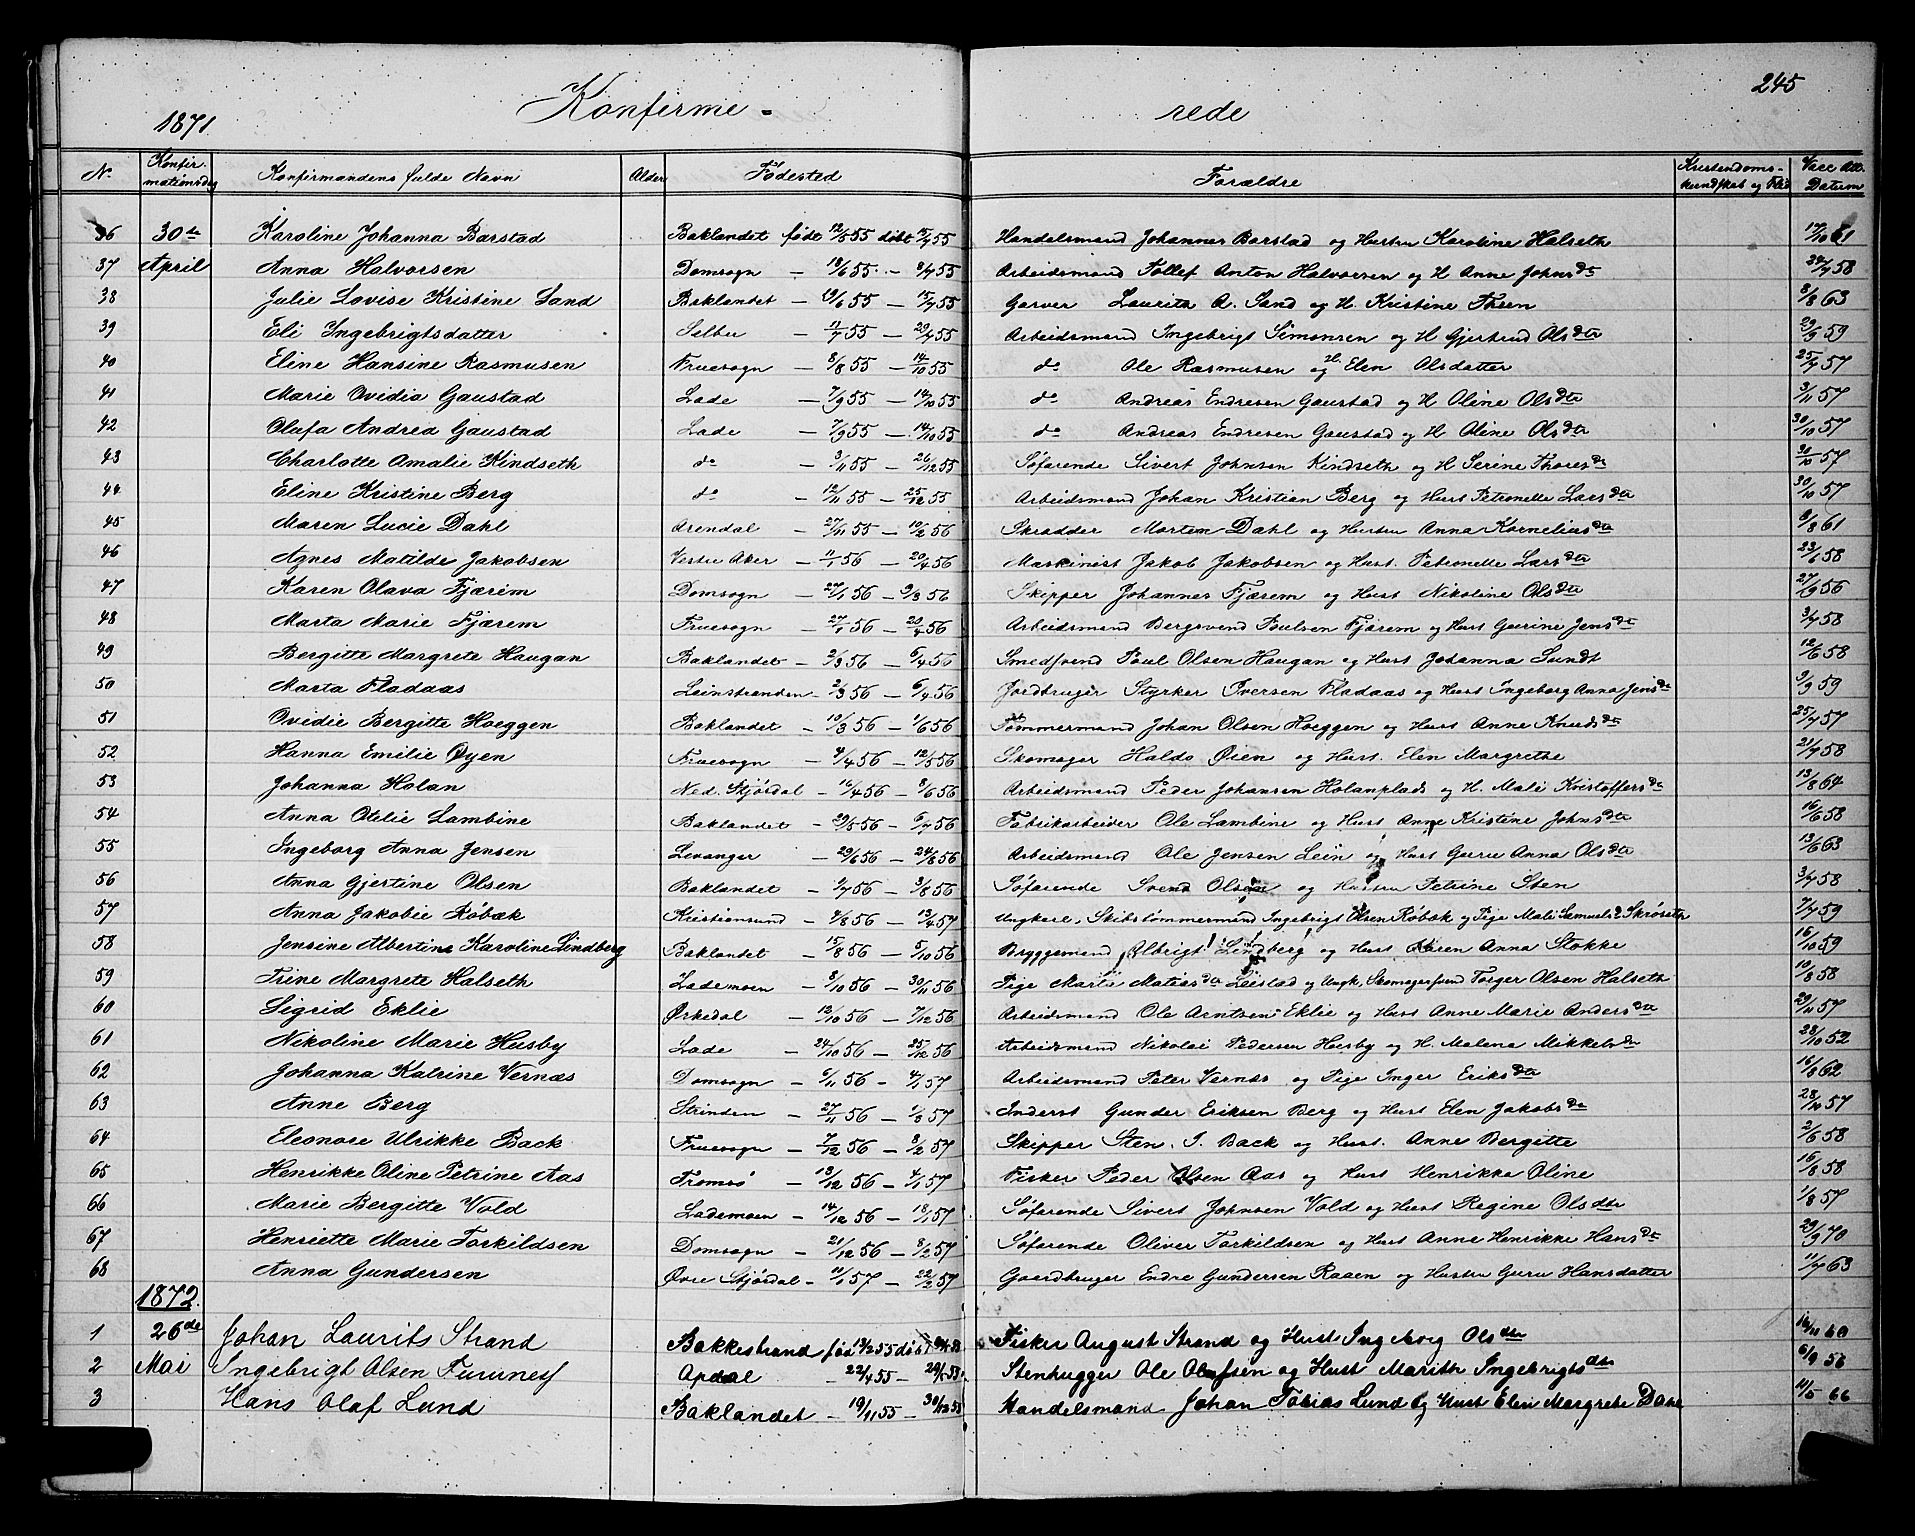 245
1871 Konfirme- rede
No Konfirmationsdag Konfirmandens fulde Navn Alder Fødested Forældre Kristendomskundskab og Flid Vacc. Att. Datum
36 30de Karoline Johanna Barstad Baklandet født 12/5 55 døbt 15/7 55 Handelsmand Johannes Barstad og Hustru Karoline Halseth 17/10 61
37 April Anna Halvorsen Domsogn – 13/6 55 – 8/7 55 Arbeidsmand Tollef Anton Halvorsen og H. Anne Johnsdtr 29/7 58
38 Julie Lovise Kristine Sand Baklandet – 19/6 55 – 15/7 55 Garver Laurits A. Sand og H. Kristine Theen 3/8 63
39 Eli Ingebrigtsdatter Selbu – 11/7 55 – 29/7 55 Arbeidsmand Ingebrigt Simonsen og H Gjertrud Olsdtr 29/9 59
40 Eline Hansine Rasmusen Fruesogn – 8/8 55 – 14/10 55 do Ole Rasmusen og H. Elen Olsdatter 25/7 57
41 Marie Ovidia Gaustad Lade – 7/9 55 – 14/10 55 do Andreas Endresen Gaustad og H Oline Olsdtr 3/11 57
42 Olufa Andrea Gaustad Lade – 7/9 55 – 14/10 55 do Andreas Endresen Gaustad og H Oline Olsdtr 30/10 57
43 Charlotte Amalie Kindseth do – 3/11 55 – 26/12 55 Søfarende Sivert Johnsen Kindseth og H Serine Thoresdr 30/10 57
44 Eline Kristine Berg do – 12/11 55 – 25/12 55 Arbeidsmand Johan Kristian Berg og Hust Petronelle Larsdtr 30/10 57
45 Maren Lucie Dahl Arendal – 27/11 55 – 10/2 56 Skrædder Morten Dahl og Hustru Anna Korneliusdtr 8/8 61
46 Agnes Matilde Jakobsen Vestre Aker – 11/1 56 – 20/4 56 Maskinist Jakob Jakobsen og Hust. Petronelle Larsdtr 23/1 58
47 Karen Olava Fjærem Domsogn – 27/1 56 – 9/3 56 Skipper Johannes Fjærem og Hust Nikoline Olsdtr 27/9 56
48 Marta Marie Fjærem Fruesogn – 27/1 56 – 20/4 56 Arbeidsmand Bergsvend Poulsen Fjærem og Hust Guerine Jensdr 3/7 58
49 Bergitte Margrete Haugan Baklandet – 2/3 56 – 6/4 56 Smedsvend Poul Olsen Haugan og Hust Johanna Sundt 12/6 58
50 Marta Fladaas Leinstranden – 2/3 56 – 6/4 56 Jordbruger Styrker Iversen Fladaas og Hust Ingeborg Anna Jensdr 9/9 59
51 Ovidie Bergitte Hoeggen Baklandet – 10/3 56 – 1/6 56 Tømmermand Johan Olsen Hoeggen og Hust Anne Knudsdtr 25/7 57
52 Hanna Emilie Øyen Fruesogn – 4/4 56 – 12/5 56 Skomager Halds Øien og Hust. Elen Margrethe 21/7 58
53 Johanna Holan Ned. Stjørdal – 16/4 56 – 8/6 56 Arbeidsmand Peder Johansen Holanplads og H. Mali Kristoffersdr 13/8 64
54 Anna Otelie Lambine Baklandet – 29/5 56 – 6/7 56 Fabrikarbeider Ole Lambine og Hust Anne Kristine Johnsdtr 16/6 58
55 Ingeborg Anna Jensen Levanger – 29/6 56 – 24/8 56 Arbeidsmand Ole Jensen Lein og Hust Guru Anna Olsdtr 13/6 63
56 Anna Gjertine Olsen Baklandet – 9/7 56 – 3/8 56 Søfarende Svend Olsen og Hustru Petrine Sten 3/7 58
57 Anna Jakobie Røbæk Kristiansund – 9/8 56 – 13/4 57 Ungkarl, Skibstømmermand Ingebrigt Olsen Røbæk og Pige Mali Samuelsd Skrøseth 7/7 59
58 Jensine Albertine Karoline Lindberg Baklandet – 15/8 56 – 5/10 56 Bryggemand Albrigt Lindberg og Hust Karen Anna Stokke 16/10 59
59 Trine Margrete Halseth Lademoen – 8/10 56 – 30/11 56 Pige Marti Matiasdtr Leistad og Ungk. Skomagersvend Torger Olsen Halseth 10/8 58
60 Sigrid Eklie Ørkedal – 12/10 56 – 7/12 56 Arbeidsmand Ole Arntsen Eklie og Hust Anne Marie Andersdtr 29/11 57
61 Nikoline Marie Husby Lade – 24/10 56 – 25/12 56 Arbeidsmand Nikolai Pedersen Husby og H. Malena Mikkelsdr 28/10 52
62 Johanna Katrine Vernæs Domsogn – 6/11 56 – 4/1 57 Arbeidsmand Peter Vernæs og Pige Inger Eriksdtr 16/8 62
63 Anne Berg Strinden – 27/11 56 – 1/3 57 Inderst Gunder Eriksen Berg og Hust Elen Jakobsdr 28/10 57
64 Eleonore Ulrikke Back Fruesogn – 7/12 56 – 8/2 57 Skipper Sten. I. Back og Hust. Anne Bergitte 2/6 58
65 Henrikke Oline Petrine Aas Tromsø – 13/12 56 – 4/1 57 Fisker Peder Olsen Aas og Hust Henrikke Oline 16/8 58
66 Marie Bergitte Vold Lademoen – 14/12 56 – 18/1 57 Søfarende Sivert Johnsen Vold og Hust Regine Olsdtr 1/8 57
67 Henriette Marie Torkildsen Domsogn – 21/12 56 – 8/2 57 Søfarende Oliver Torkildsen og Hust Anne Henrikke Hansdtr 29/9 70
68 Anna Gundersen Øvre Stjørdal – 11/1 57 – 22/2 57 Gaardbruger Endre Gundersen Raaen og Hustru Guru Hansdatter 11/7 63
1872.
1 26de Johan Laurits Strand Bakkestrand fød 13/2 55 døbt Fisker August Strand og Hust Ingeborg Olsdtr 60
2 Mai Ingebrigt Olsen Furunes Opdal – 22/4 55 – 29/5 55 Stenhugger Ole Olufsen og Hust Marith Ingebrigtsdtr 6/9 56
3 Hans Olaf Lund Baklandet – 19/11 55 – 30/12 55 Handelsmand Johan Tobias Lund og Hust Elen Margrete Dahl 11/5 66